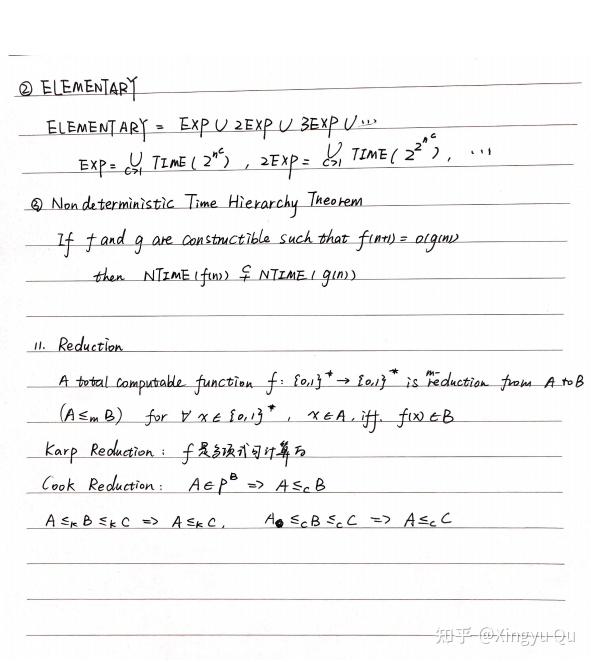 ② ELEMENTARY
ELEMENTARY = EXP ∪ 2EXP ∪ 3EXP ∪ ...
EXP = ∪_{c>1} TIME(2^{n^c}), 2EXP = ∪_{c>1} TIME(2^{2^{n^c}}), ...
③ Nondeterministic Time Hierarchy Theorem
If f and g are constructible such that f(n+1) = o(g(n))
then NTIME(f(n)) ⊊ NTIME(g(n))
11. Reduction
A total computable function f: {0,1}* → {0,1}* is m-reduction from A to B
(A ≤m B) for ∀ x ∈ {0,1}*, x ∈ A, iff. f(x) ∈ B
Karp Reduction: f 是多项式可计算的
Cook Reduction: A ∈ P^B => A ≤c B
A ≤k B ≤k C => A ≤k C, A ≤c B ≤c C => A ≤c C
知乎 @Xingyu Qu